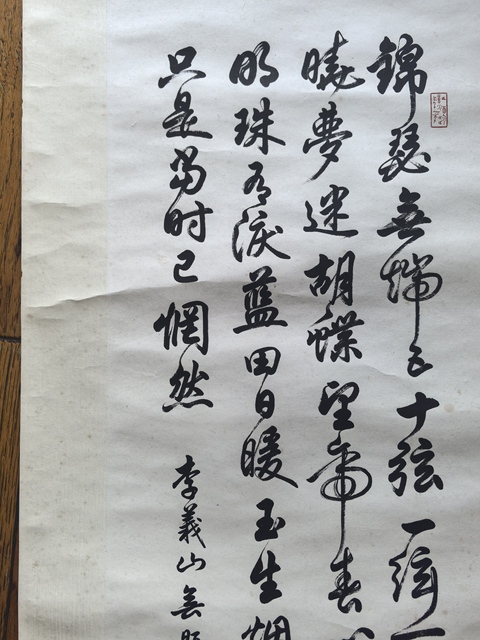 錦瑟無端五十弦一弦一
曉夢迷胡蝶望帝春
明珠有淚藍田日暖玉生烟
只是當时已惘然
李義山無